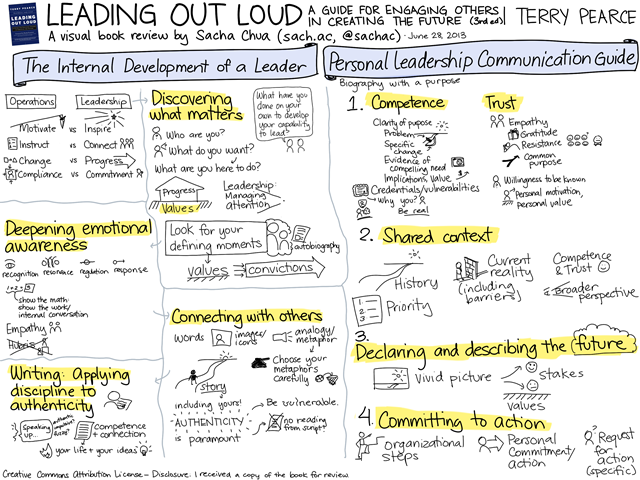 TERRY PEARCE
LEADING
OUT LOUD
LEADING OUT LOUD
A GUIDE FOR ENGAGING OTHERS
IN CREATING THE FUTURE (3rd ed)
TERRY PEARCE
A visual book review by Sacha Chua (sach.ac, @sachac) - June 28, 2013
The Internal Development of a Leader
Operations
Leadership
Motivate vs Inspire
Instruct vs Connect
Change vs Progress
Compliance vs Commitment
Discovering
what matters
What have you
done on your
own to develop
your capability
to lead?
Who are you?
What do you want?
What are you here to do?
Progress
Values
Leadership:
Managing
attention
Look for your
defining moments
autobiography
values
convictions
Deepening emotional
awareness
recognition resonance regulation response
1+2=3
show the math
show the work/
internal conversation
Empathy
Hubris
Connecting with others
Words
images/
icons
analogy/
metaphor
Choose your
metaphors
carefully
story
including yours!
Be vulnerable.
AUTHENTICITY
is paramount
no reading
from script!
Writing: Applying
discipline to
authenticity
Speaking
up...
Competence
+ connection
your life + your ideas
Personal Leadership Communication Guide
Biography with a purpose
1. Competence
Clarity of purpose
Problem
Specific
change
Evidence of
compelling need
Implications, value
Credentials/vulnerabilities
Why you?
Be real
Trust
Empathy
Gratitude
Resistance
Common
purpose
Willingness to be known
Personal motivation,
personal value
2. Shared context
History
Priority
1
2
3
Current
reality
(including
barriers)
Competence
& Trust
Broader
perspective
3.
Declaring and describing the future
Vivid picture
Stakes
values
4. Committing to action
organizational
steps
Personal
Commitment/
action
Request
for
action
(specific)
Creative Commons Attribution License - Disclosure: I received a copy of the book for review.